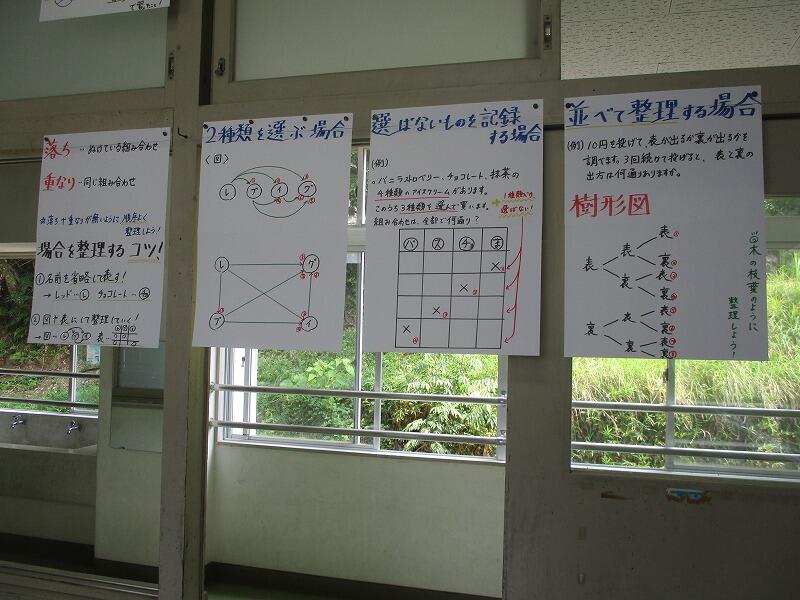 て覚えこ!
落ち…ぬけている組み合わせ
重なり…同じ組み合わせ
☆落ち重なりが無いように順序よく
整理しよう!
場合を整理するコツ!
①名前を省略して表す!
→レッド…レ チョコレート…チョ
②図や表にして整理していく!
→図… 表…
2種類を選ぶ場合
<図>
レ ブ イ グ
レ グ
ブ イ
選ばないものを記録
する場合
(例)
。バニラ、ストロベリー、チョコレート、抹茶の
4種類のアイスクリームがあります。
このうち3種類を選んで買います。
組み合わせは、全部で何通り?
→1種類だけ
選ばない!
バ ス チョ ま
× ①
× ②
× ③
× ④
並べて整理する場合
(例) 10円を投げて、表が出るか裏が出るかを
調べます。3回続けて投げると、表と裏の
出方は何通りありますか。
樹形図
表 表 表 ①
裏 ②
裏 表 ③
裏 ④
裏 表 表 ⑤
裏 ⑥
裏 表 ⑦
裏 ⑧
☆木の枝葉のように
整理しよう!